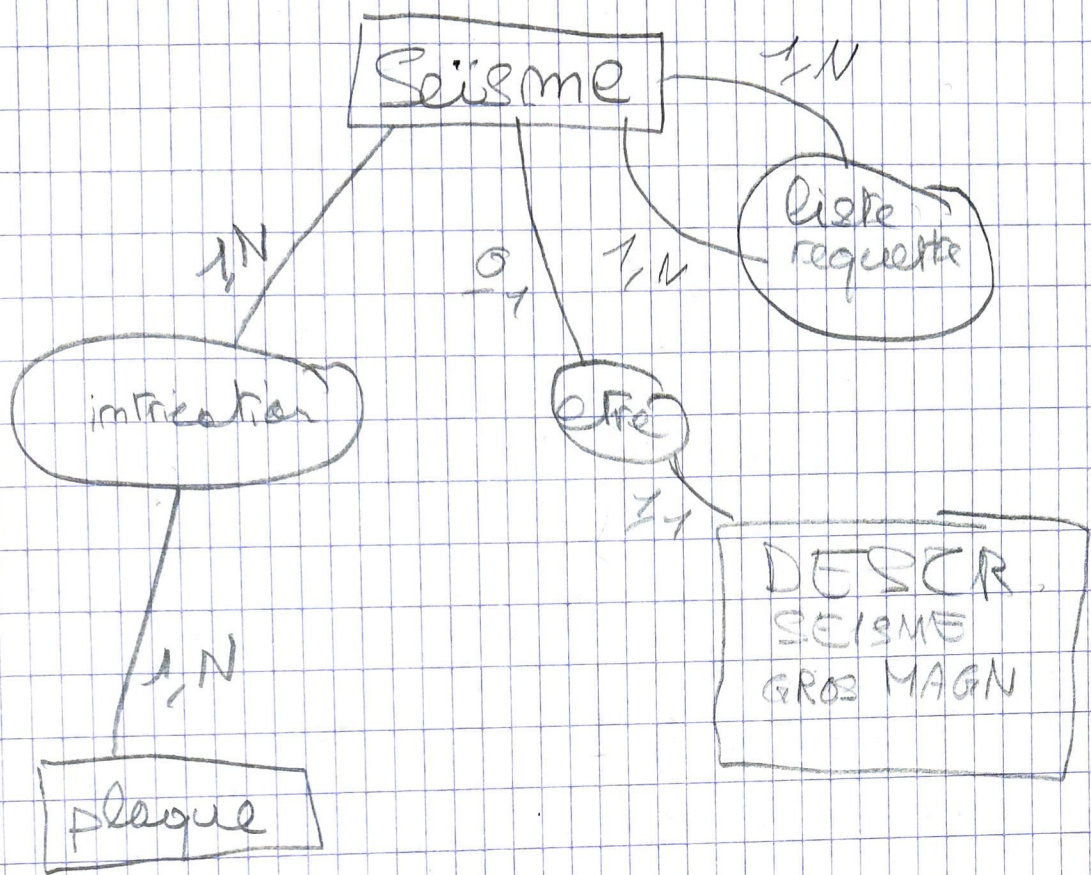 Seïsme
1,N
liste
requette
1,N
0,1
1,N
intrication
etre
1,1
DESCR.
SEISME
GROS MAGN
1,N
plaque